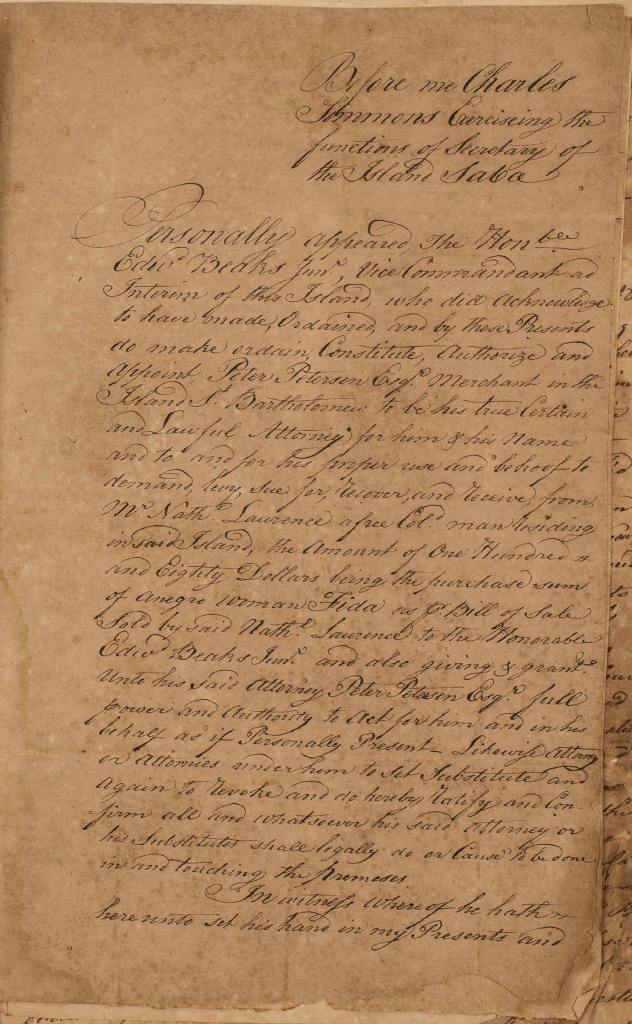 Before me Charles
Simmons Exercising the
functions of Secretary of
the Island Saba
Personally appeared, The Honble
Edwd Beaks Junr, Vice Commandant ad
Interim of this Island, who did acknowledge
to have made, Ordained, and by these Presents
do make ordain, Constitute, Authorize and
appoint, Peter Petersen Esqr. Merchant in the
Island St. Bartholomew to be his true Certain
and Lawful Attorney for him & his Name
and to and for his proper use and behoof to
demand, levy, sue for, recover, and receive, from
Mr. Nathl. Lawrence a free Cold. man residing
in said Island, the Amount of One Hundred &
and Eighty Dollars being the purchase sum
of a negro woman Fida as pr. Bill of Sale
Sold by said Nathl. Lawrence to the Honorable
Edwd Beaks Junr. and also giving & grantg.
Unto his said Attorney Peter Petersen Esqr. full
power and Authority to Act for him and in his
behalf as if Personally Present - Likewise Attorny
or attornies under him to Set Substitute and
Again to revoke and do hereby ratify and Con-
firm all and whatsoever his said Attorney or
his Substitutes shall legally do or Cause to be done
in and touching the premeses
In witness Where of he hath
here unto set his hand in my Presents and